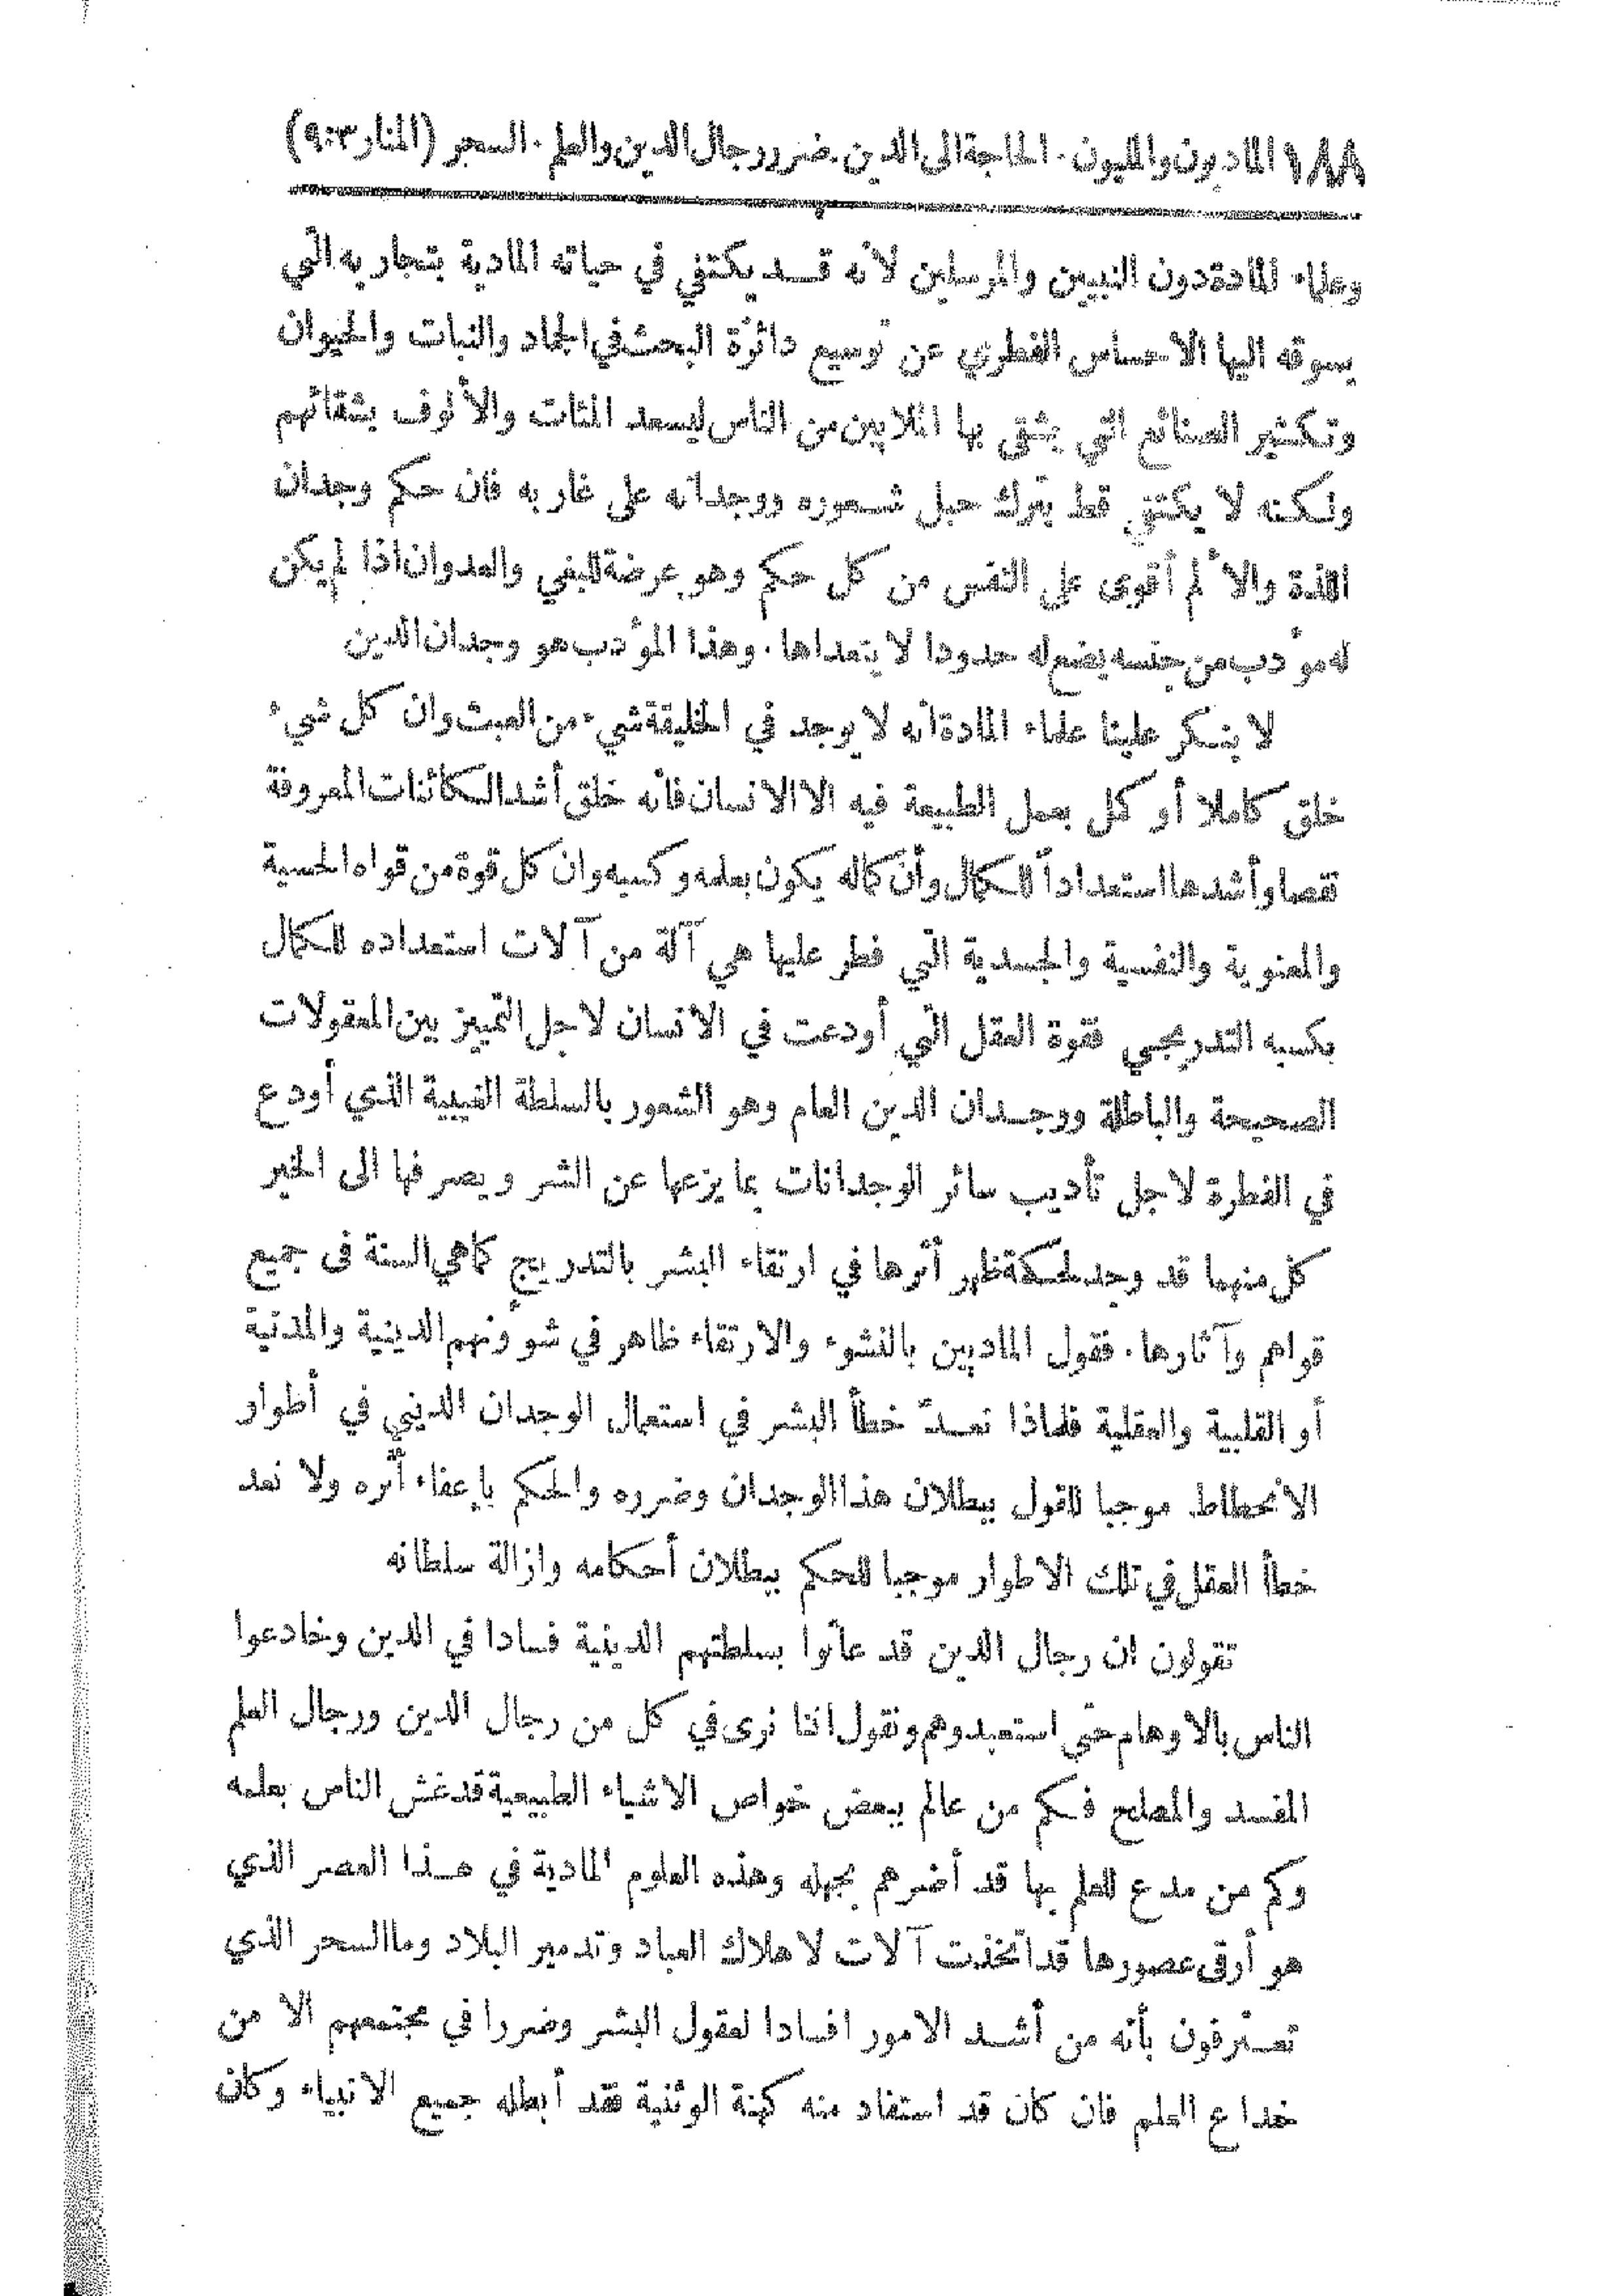 ١٨٨ الماديون والمليون . الحاجة الى الدين . ضرر رجال الدين والعلم . السحر (المنار ٣:٩)
وعلماء المادة دون النبيين والمرسلين لأنه قد يكتفي في حياته المادية بتجاربه التي
يسوقه اليها الاحساس الفطري عن توسيع دائرة البحث في الجماد والنبات والحيوان
وتكثير الصنائع التي يشقى بها الملايين من الناس ليسعد المئات والألوف بشقائهم
ولكنه لا يكتفي قط بترك حبل شعوره ووجدانه على غاربه فان حكم وجدان
اللذة والألم أقوى على النفس من كل حكم وهو عرضة للبغي والعدوان اذا لم يكن
له مؤدب من جنسه يضع له حدودا لا يتعداها . وهذا المؤدب هو وجدان الدين
لا ينكر علينا علماء المادة أنه لا يوجد في الخليقة شيء من العبث وان كل شيء
خلق كاملا أو كمل بعمل الطبيعة فيه الا الانسان فانه خلق أشد الكائنات المعروفة
نقصا وأشدها استعداداً للكمال وأن كماله يكون بعلمه وكسبه وان كل قوة من قواه الحسية
والمعنوية والنفسية والجسدية التي فطر عليها هي آلة من آلات استعداده للكمال
بكسبه التدريجي فقوة العقل التي أودعت في الانسان لاجل التمييز بين المعقولات
الصحيحة والباطلة ووجدان الدين العام وهو الشعور بالسلطة الغيبية الذي أودع
في الفطرة لاجل تأديب سائر الوجدانات بما يزعها عن الشر ويصرفها الى الخير
كل منهما قد وجد لحكمة ظهر أثرها في ارتقاء البشر بالتدريج كما هي السنة فى جميع
قواهم وآثارها . فقول الماديين بالنشوء والارتقاء ظاهر في شؤونهم الدينية والمدنية
أو القلبية والعقلية فلماذا نعدّ خطأ البشر في استعمال الوجدان الديني في أطوار
الانحطاط موجبا للقول ببطلان هذا الوجدان وضرره والحكم بإعفاء أثره ولا نعد
خطأ العقل في تلك الاطوار موجبا للحكم ببطلان أحكامه وازالة سلطانه
تقولون ان رجال الدين قد عاثوا بسلطتهم الدينية فسادا في الدين وخادعوا
الناس بالاوهام حتى استعبدوهم ونقول اننا نرى في كل من رجال الدين ورجال العلم
المفسد والمصلح فكم من عالم ببعض خواص الاشياء الطبيعية قد غش الناس بعلمه
وكم من مدع للعلم بها قد أضرهم بجهله وهذه العلوم المادية في هذا العصر الذي
هو أرقى عصورها قد اتخذت آلات لاهلاك العباد وتدمير البلاد وما السحر الذي
تعترفون بأنه من أشد الامور افسادا لعقول البشر وضررا في مجتمعهم الا من
خداع العلم فان كان قد استفاد منه كهنة الوثنية فقد أبطله جميع الانبياء وكان